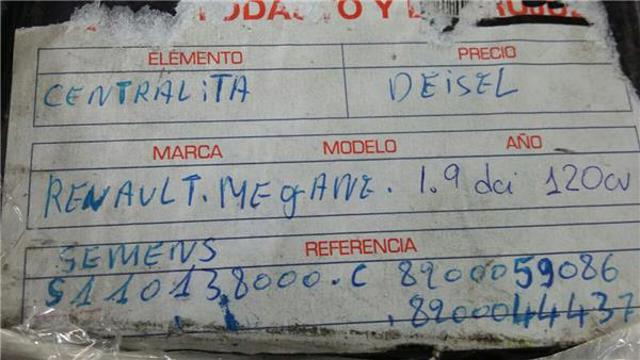 PRODUCTO Y
ELEMENTO PRECIO
CENTRALITA DEISEL
MARCA MODELO AÑO
RENAULT. MEgANE. 1.9 dci 120cv
REFERENCIA
SEMENS
S110138000.C 8200059086
.8200044437